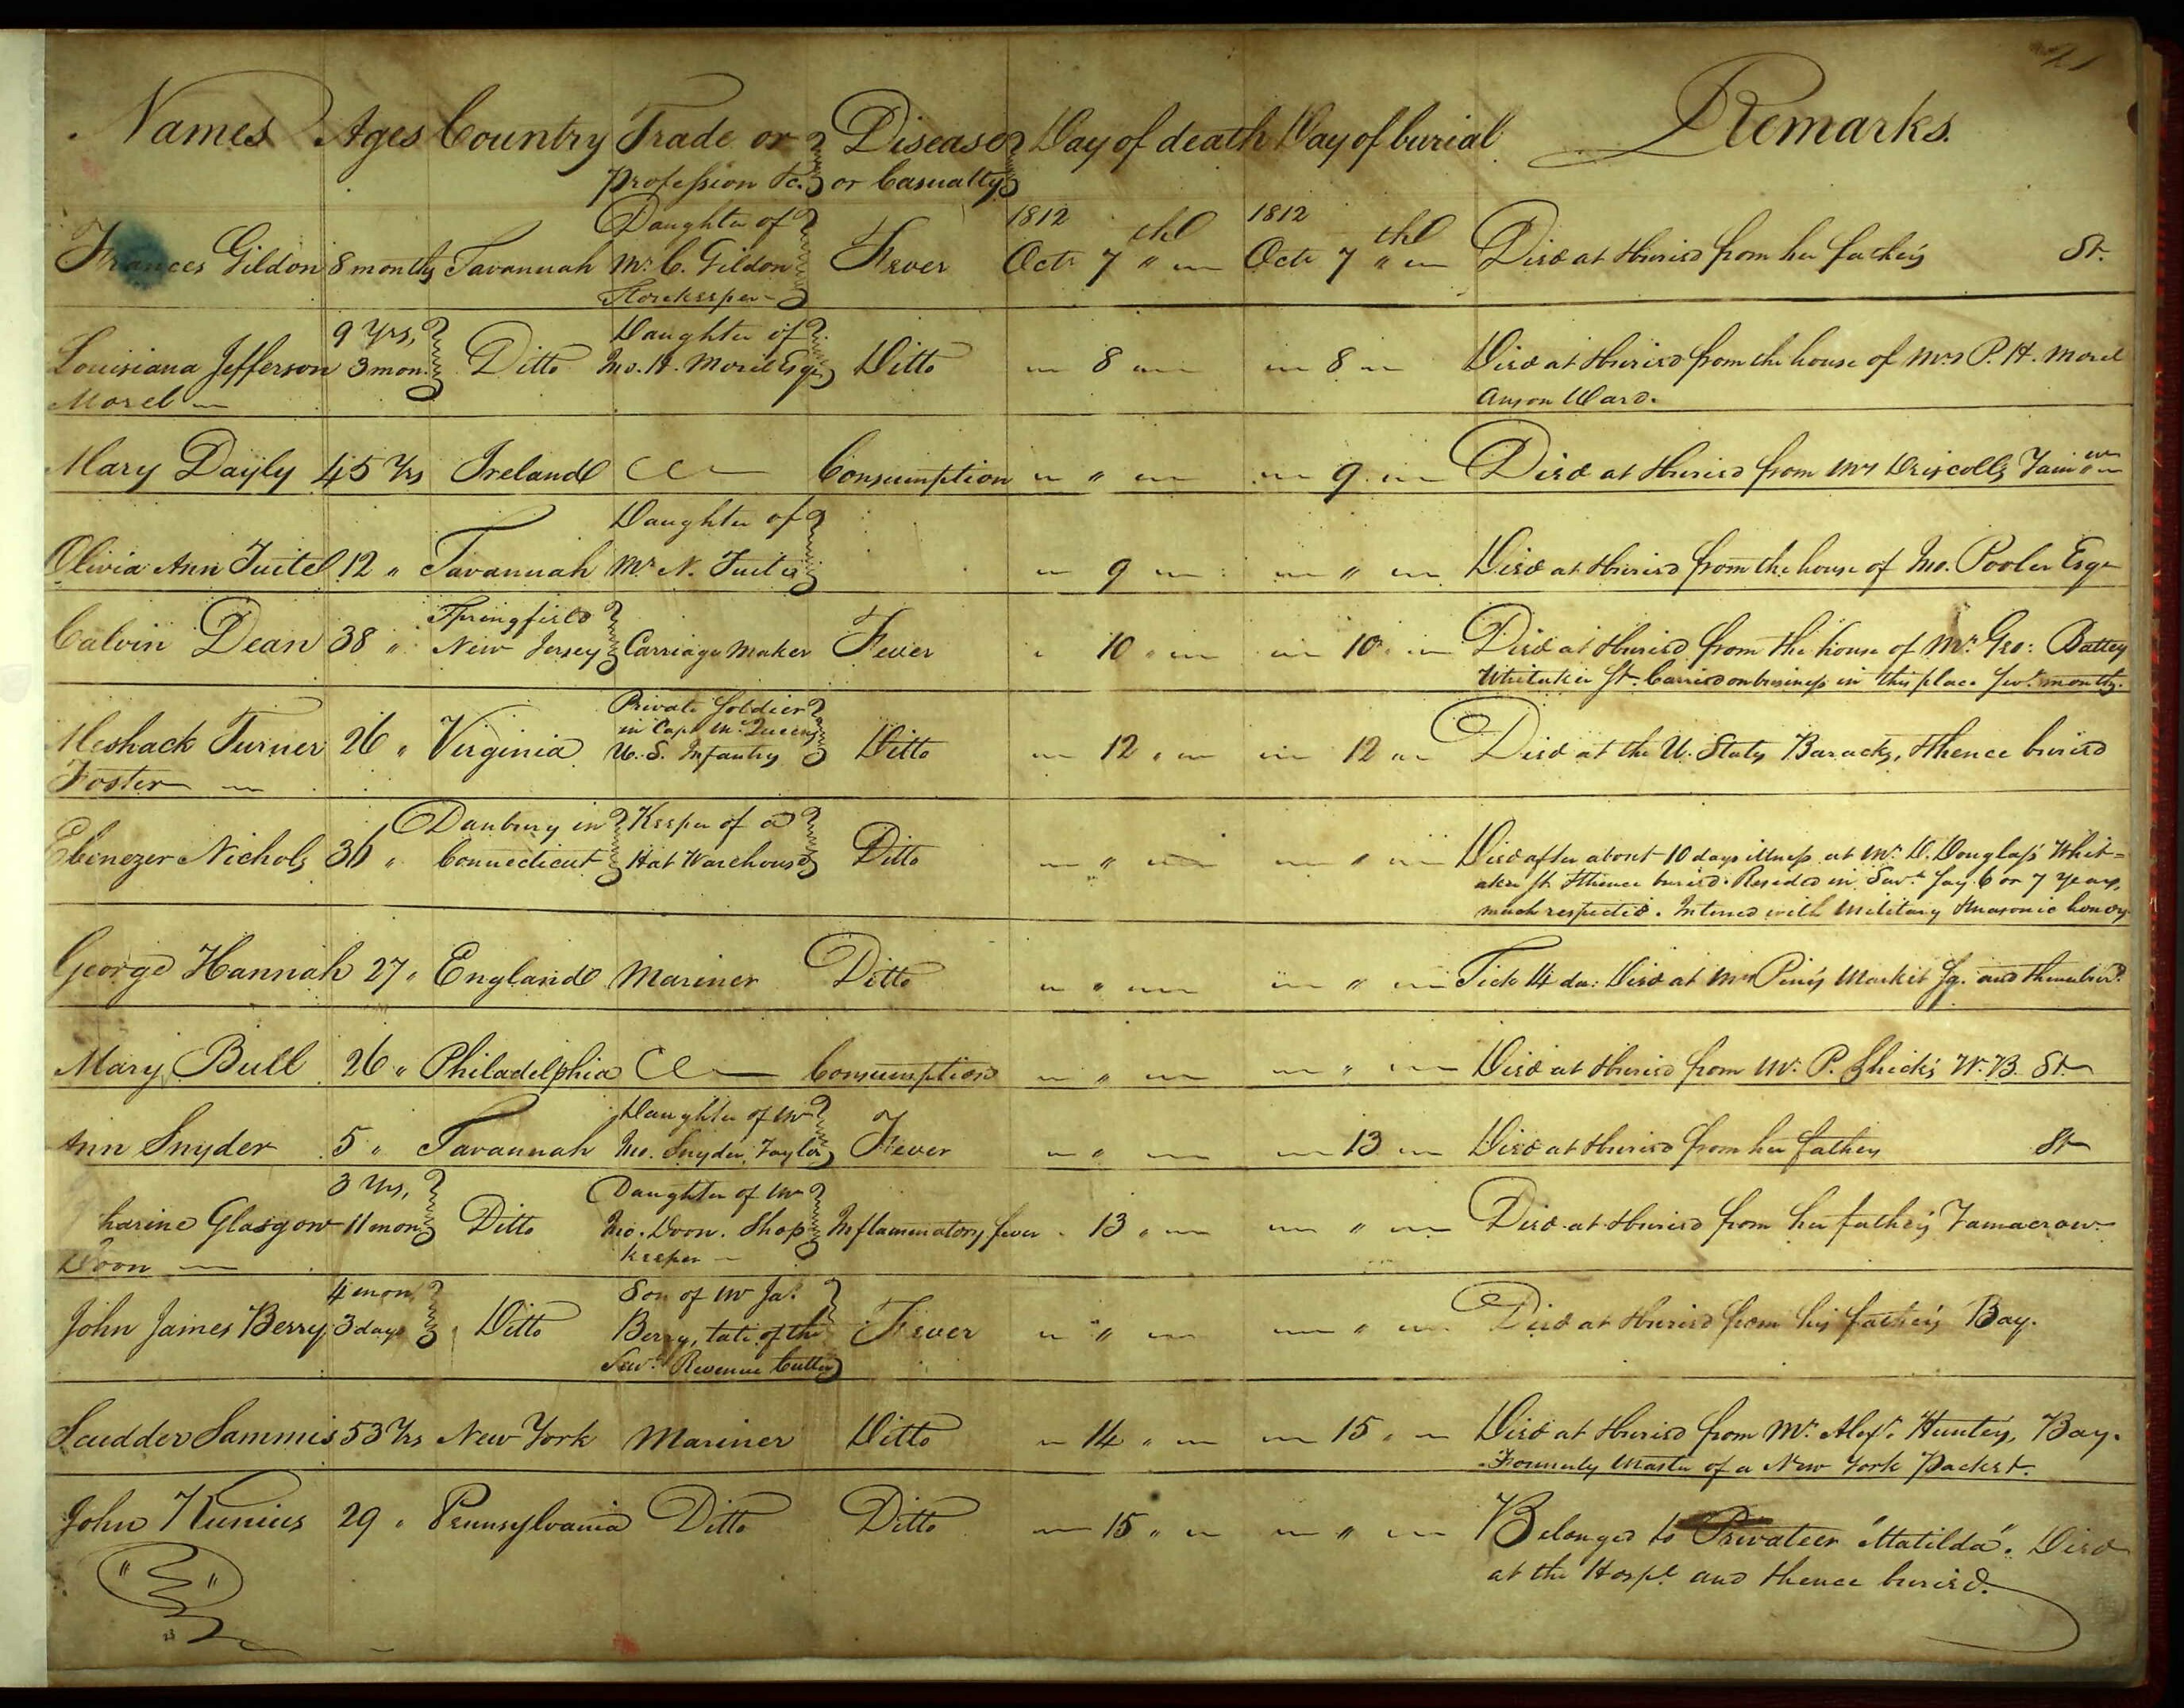 21
Names Ages Country Trade or Disease Day of death Day of burial Remarks.
profession &c. or Casualty
Daughter of 1812 1812
Frances Gildon 8 months Savannah Mr. C. Gildon Fever Octr 7th " Octr 7th " Died at & buried from her father's St.
Storekeeper
9 Yrs, Daughter of
Louisiana Jefferson 3 mon. Ditto Jno. H. Morel Esqr. Ditto 8 8 Died at & buried from the house of Mrs P. H. Morel
Morel Anson Ward.
Mary Dayly 45 Yrs Ireland Consumption " 9 Died at & buried from Mrs Driscolls
Daughter of
Olivia Ann Tuitel 12 " Savannah Mr. N. 9 " Died at & buried from the house of Jno. Pooler Esqr
Springfield
Calvin Dean 38 " New Jersey Carriage Maker Fever 10 " 10 " Died at & buried from the house of Mr. Geo: Battey
Whitaker St. Carried on business in this place months.
Private Soldier
in Capt McQueens
Meshack Turner 26 " Virginia U. S. Infantry Ditto 12 " 12 " Died at the U. States Baracks, & thence buried
Foster
Danbury in Keeper of a
Ebenezer Nichols 36 " Connecticut Hat Warehouse Ditto " " Died after about 10 days illness at Mr. D. Douglass' Whit=
aker St. & thence buried. Reseded in Savh. say 6 or 7 Years,
much respected. Interred with Military & masonic honors
George Hannah 27 " England Mariner Ditto " " Sick 14 da: Died at Mrs Market Sq. and thence burd.
Mary Bull 26 " Philadelphia Consumption " " Died at & buried from Mr. P. Shick's W. B. St
Daughter of Mr
Ann Snyder 5 " Savannah Jno. Snyder, Taylor Fever " 13 Died at & buried from her fathers St
3 Yrs, Daughter of Mr
harine Glasgow 11 mon Ditto Jno. Doon. Shop Inflammatory fever 13 " " Died at & buried from her father's Yamacraw
Doon keeper
4 mon. Son of Mr Jas.
John James Berry 3 days Ditto Berry, late of the Fever " " Died at & buried from his father's Bay.
Savh. Revenue Cutter
Scudder Sammis 53 Yrs New York Mariner Ditto 14 " 15 " Died at & buried from Mr. Alexr. Hunters, Bay.
Formerly Master of a New York Packet.
John Kunius 29 " Pennsylvania Ditto Ditto 15 " " Belonged to Privateer "Matilda". Died
at the Hospl. and thence buried.